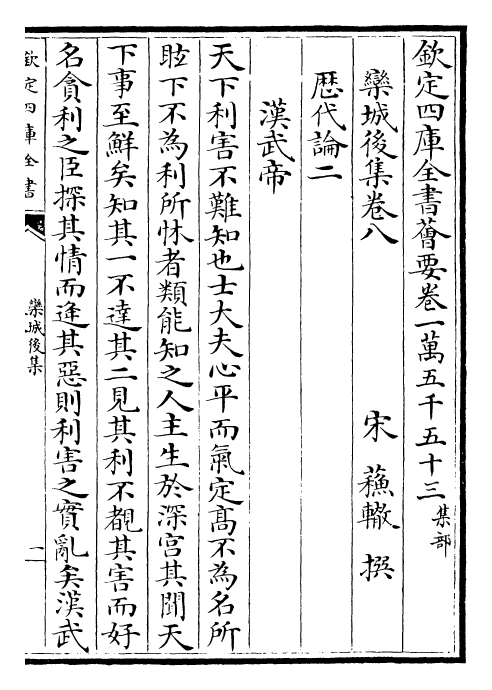 欽定四庫全書薈要卷一萬五千五十三集部
欒城後集卷八　宋　蘓轍　撰
歴代論二
漢武帝
天下利害不難知也士大夫心平而氣定髙不為名所
眩下不為利所怵者類能知之人主生於深宫其聞天
下事至鮮矣知其一不達其二見其利不覩其害而好
名貪利之臣探其情而逢其惡則利害之實亂矣漢武
欽定四庫全書
欒城後集
一